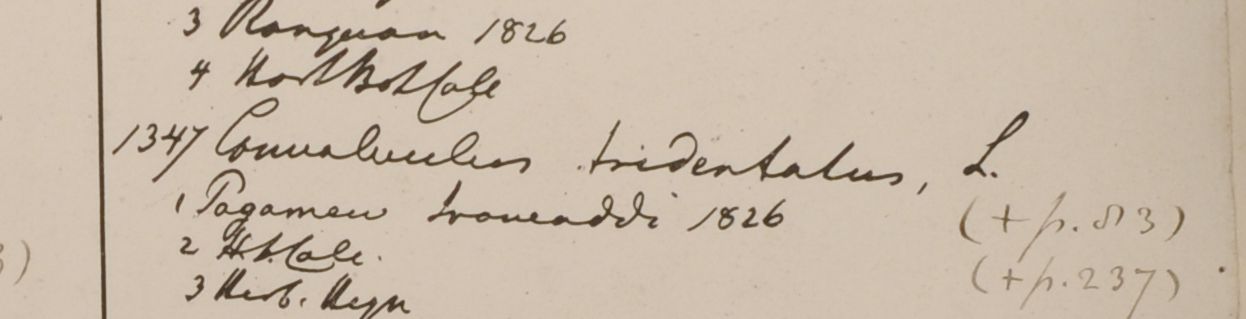 3 Ranguan 1826
4 Hort Bot Calc
1347 Convolvulus tridentatus, L.
1 Pagamew Irawaddi 1826
(+ p. 83)
2 H.b. Calc.
(+ p. 237)
3 Herb. Heyn
3)